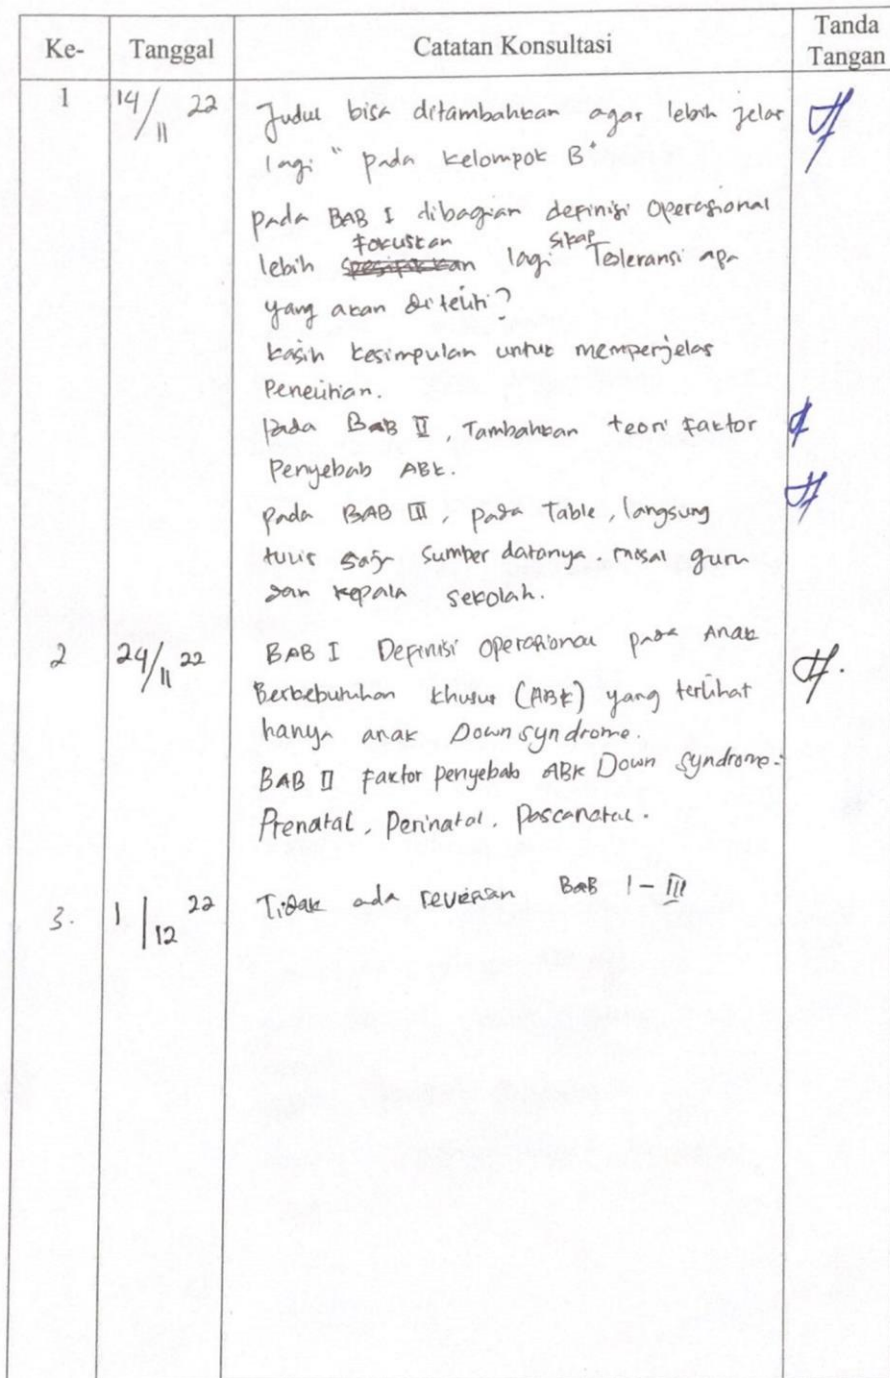 Ke- Tanggal Catatan Konsultasi Tanda Tangan
1 14/11 22 Judul bisa ditambahkan agar lebih jelas
lagi "pada kelompok B"
pada BAB I dibagian definisi Operasional
lebih fokuskan lagi sikap Toleransi apa
yang akan diteliti?
kasih kesimpulan untuk memperjelas
Penelitian.
pada BAB II, Tambahkan teori faktor
Penyebab ABK.
pada BAB III, pada Table, langsung
tulis saja sumber datanya. misal guru
dan kepala sekolah.
2 24/11 22 BAB I Definisi Operasional pada Anak
Berkebutuhan khusus (ABK) yang terlihat
hanya anak Down syndrome.
BAB II faktor penyebab ABK Down syndrome:
Prenatal, Perinatal, Pascanatal.
3. 1/12 22 Tidak ada revisian BAB I - III